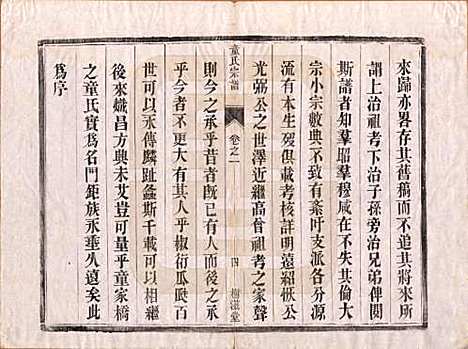 來歸亦畧存其舊稿而不追其將來所
謂上治祖考下治子孫旁治兄弟俾閱
斯譜者知羣昭羣穆咸在不失其倫大
宗小宗數典不致有紊吁支派各分源
流有本生歿俱載考核詳明遠紹
公之世澤近繼高曾祖考之家聲
則今之承乎昔者旣已無忝矣後之繼
乎今者不更大有其人乎椒衍瓜瓞百
世可以永傳麟趾螽斯千載可以相繼
後來熾昌方興未艾豈可量乎童家橋
之童氏實爲名門鉅族永垂久遠矣此
爲序
童氏宗譜
卷之一
四